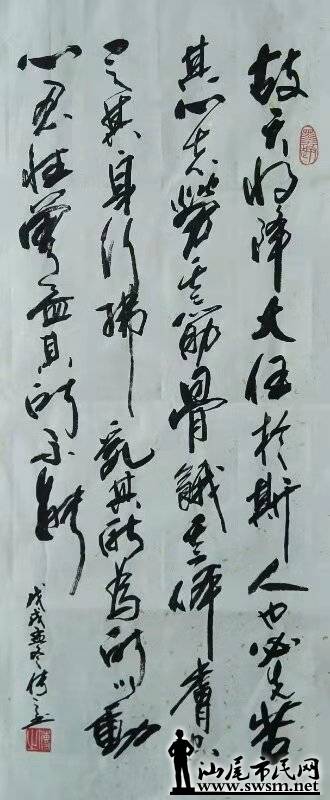 故天将降大任於斯人也必先苦
其心志勞其筋骨餓其体膚空
乏其身行拂亂其所為所以動
心忍性曾益其所不能
戊戌孟冬
汕尾市民网
www.swsm.net